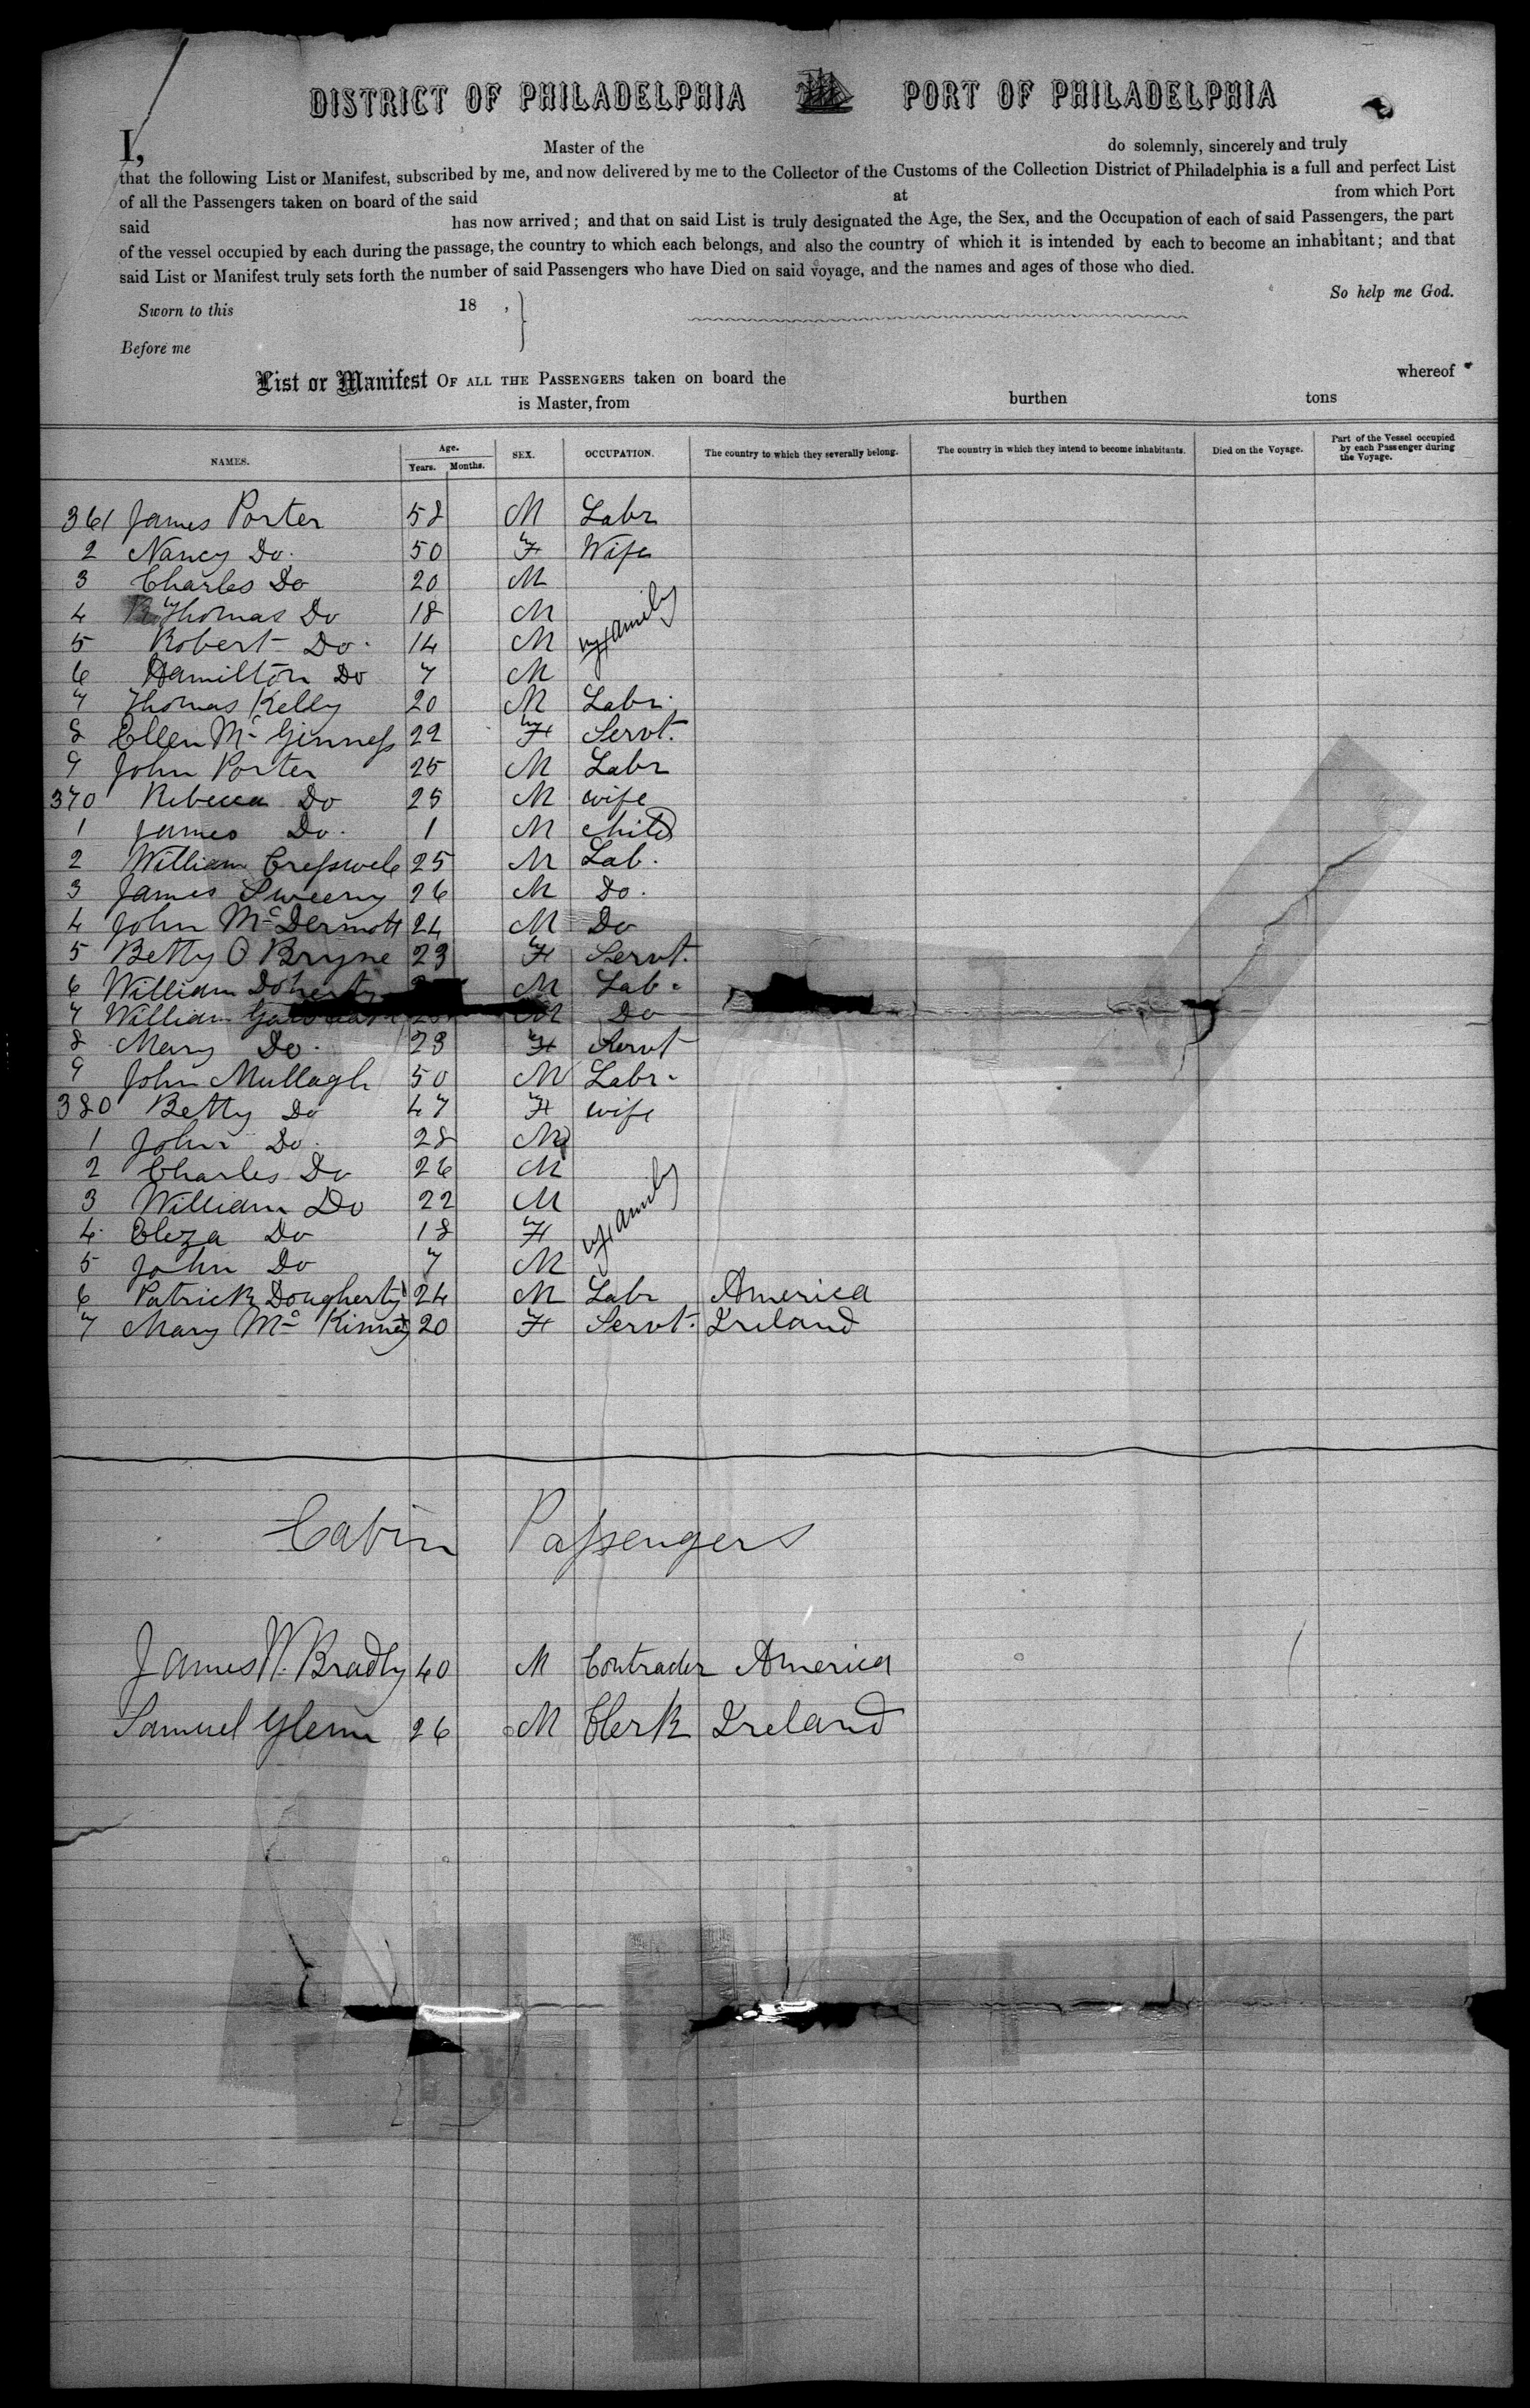 DISTRICT OF PHILADELPHIA PORT OF PHILADELPHIA
I, Master of the do solemnly, sincerely and truly
that the following List or Manifest, subscribed by me, and now delivered by me to the Collector of the Customs of the Collection District of Philadelphia is a full and perfect List
of all the Passengers taken on board of the said at from which Port
said has now arrived; and that on said List is truly designated the Age, the Sex, and the Occupation of each of said Passengers, the part
of the vessel occupied by each during the passage, the country to which each belongs, and also the country of which it is intended by each to become an inhabitant; and that
said List or Manifest truly sets forth the number of said Passengers who have Died on said voyage, and the names and ages of those who died.
So help me God.
Sworn to this 18 ,
Before me
List or Manifest OF ALL THE PASSENGERS taken on board the whereof
is Master, from burthen tons
NAMES. Age. Years. Months. SEX. OCCUPATION. The country to which they severally belong. The country in which they intend to become inhabitants. Died on the Voyage. Part of the Vessel occupied by each Passenger during the Voyage.
361 James Porter 58 M Labr
2 Nancy Do. 50 F Wife
3 Charles Do 20 M
4 Thomas Do 18 M family
5 Robert Do. 14 M
6 Hamilton Do 7 M
7 Thomas Kelly 20 M Labr.
8 Ellen Mc Ginness 22 F Servt.
9 John Porter 25 M Labr
370 Rebecca Do 25 M wife
1 James Do. 1 M child
2 William Cresswele 25 M Lab.
3 James Sweeny 26 M Do.
4 John Mc Dermott 24 M Do
5 Betty O Bryne 23 F Servt.
6 William Doherty M Lab.
7 William M Do
8 Mary Do. 23 F Servt
9 John Mullagh 50 M Labr.
380 Betty Do 47 F wife
1 John Do. 28 M
2 Charles Do 26 M
3 William Do 22 M family
4 Eliza Do 18 F
5 John Do 7 M
6 Patrick Dougherty 24 M Labr America
7 Mary Mc Kinney 20 F Servt. Ireland
Cabin Passengers
James W. Bradly 40 M Contrader America
Samuel Glenn 26 M Clerk Ireland